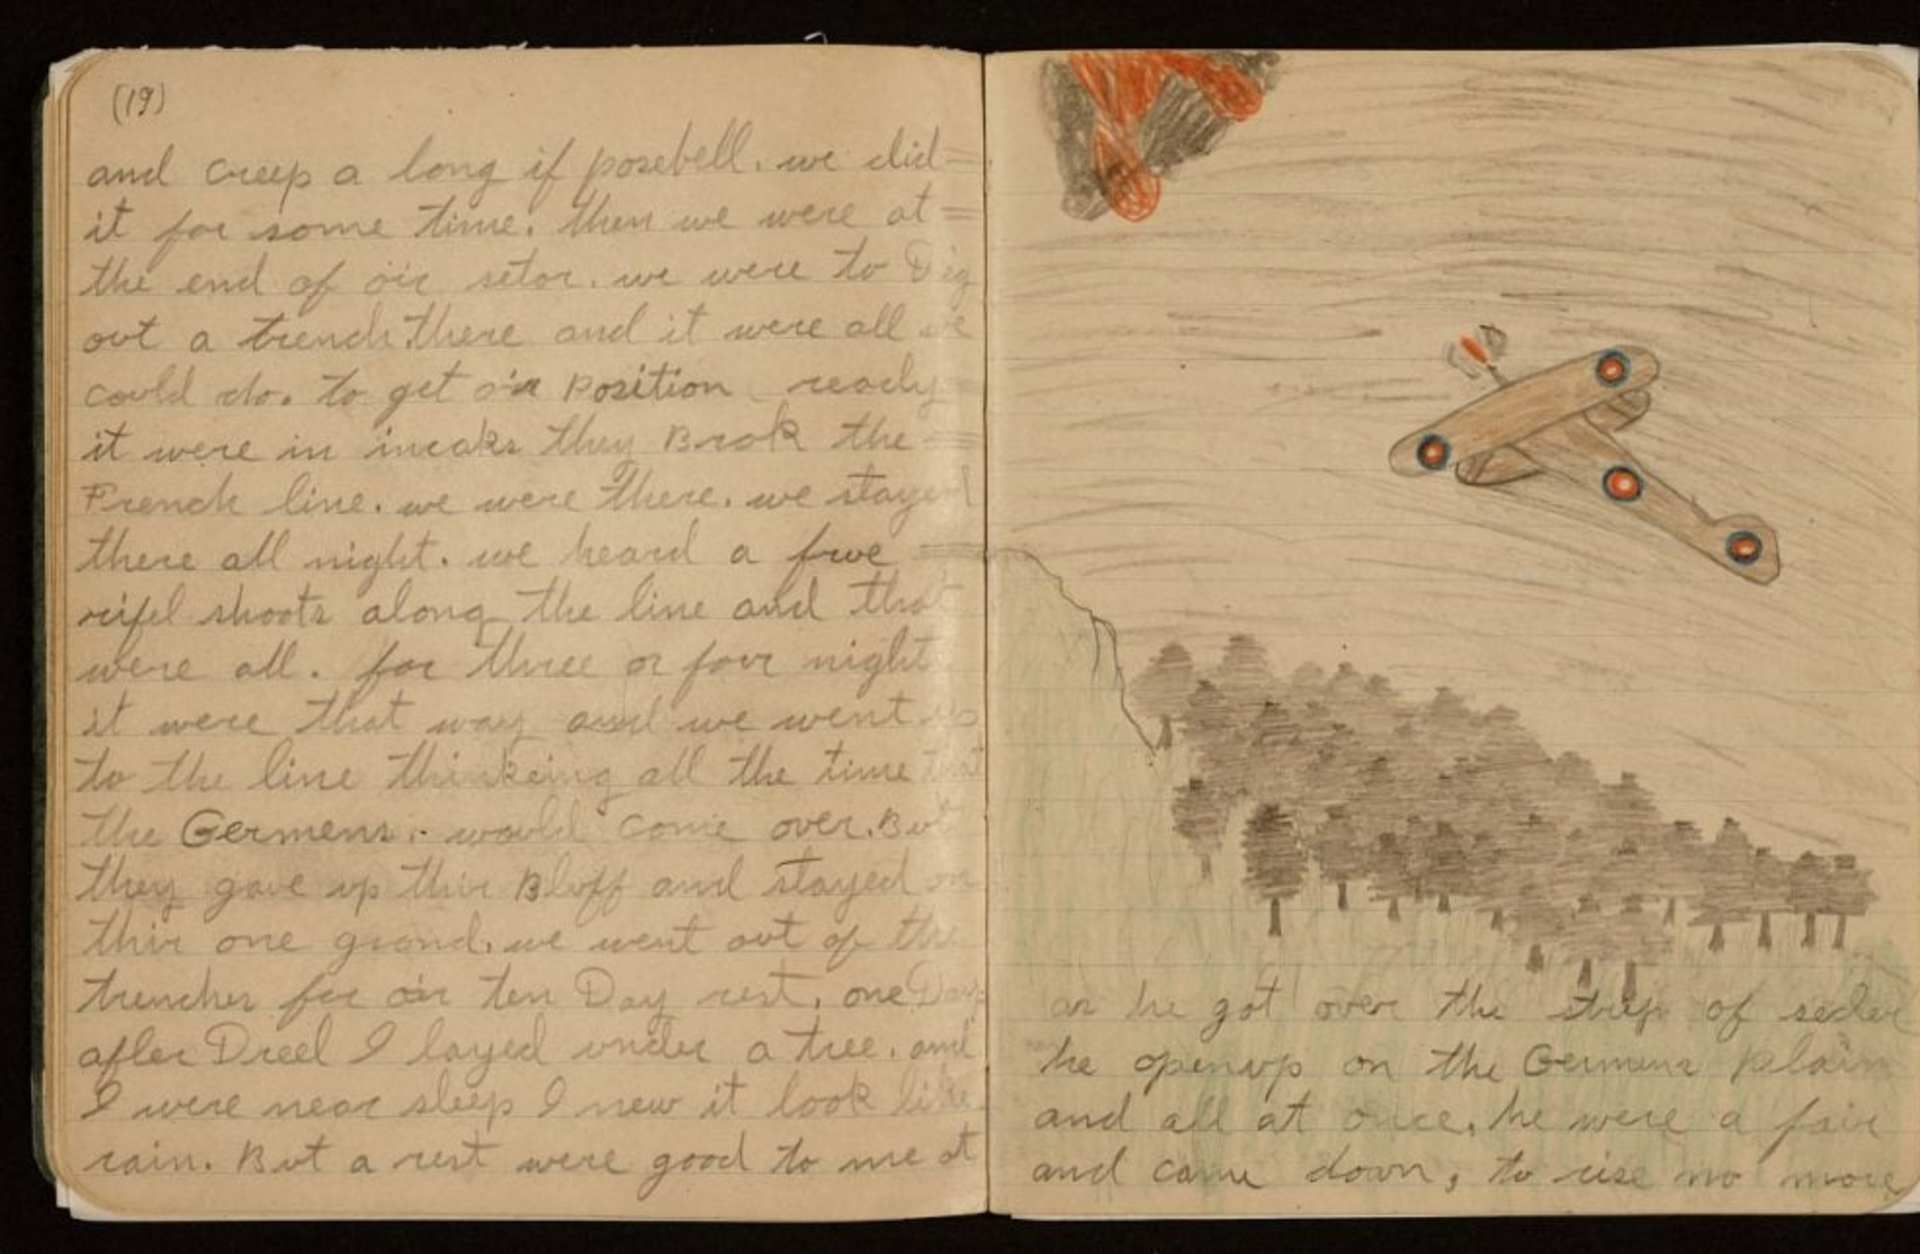 (19)
and creep a long if posebell. we did
it for some time. then we were at
the end of oir setor. we were to Dig
out a trench there and it were all we
could do. to get oir Position ready
it were in incaks they Brok the
French line. we were there. we stayed
there all night. we heard a fwe
rifel shoots along the line and that
were all. for three or fovr night
it were that way and we went up
to the line thinkeing all the time that
the Germens. would come over. But
they gave up thir Bluff and stayed on
thir one grond. we went out of the
trenches for oir ten Day rest. one Day
after Dreel I layed under a tree. and
I were near sleep I new it look like
rain. But a rest were good to me at
as he got over the strip of seder
he openup on the Germens plain
and all at once. he were a fair
and came down, to rise no more